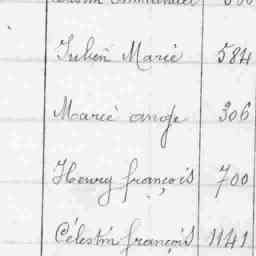 Julien Marie 584
Marie ange 306
Henry françois 700
Célestin françois 1141